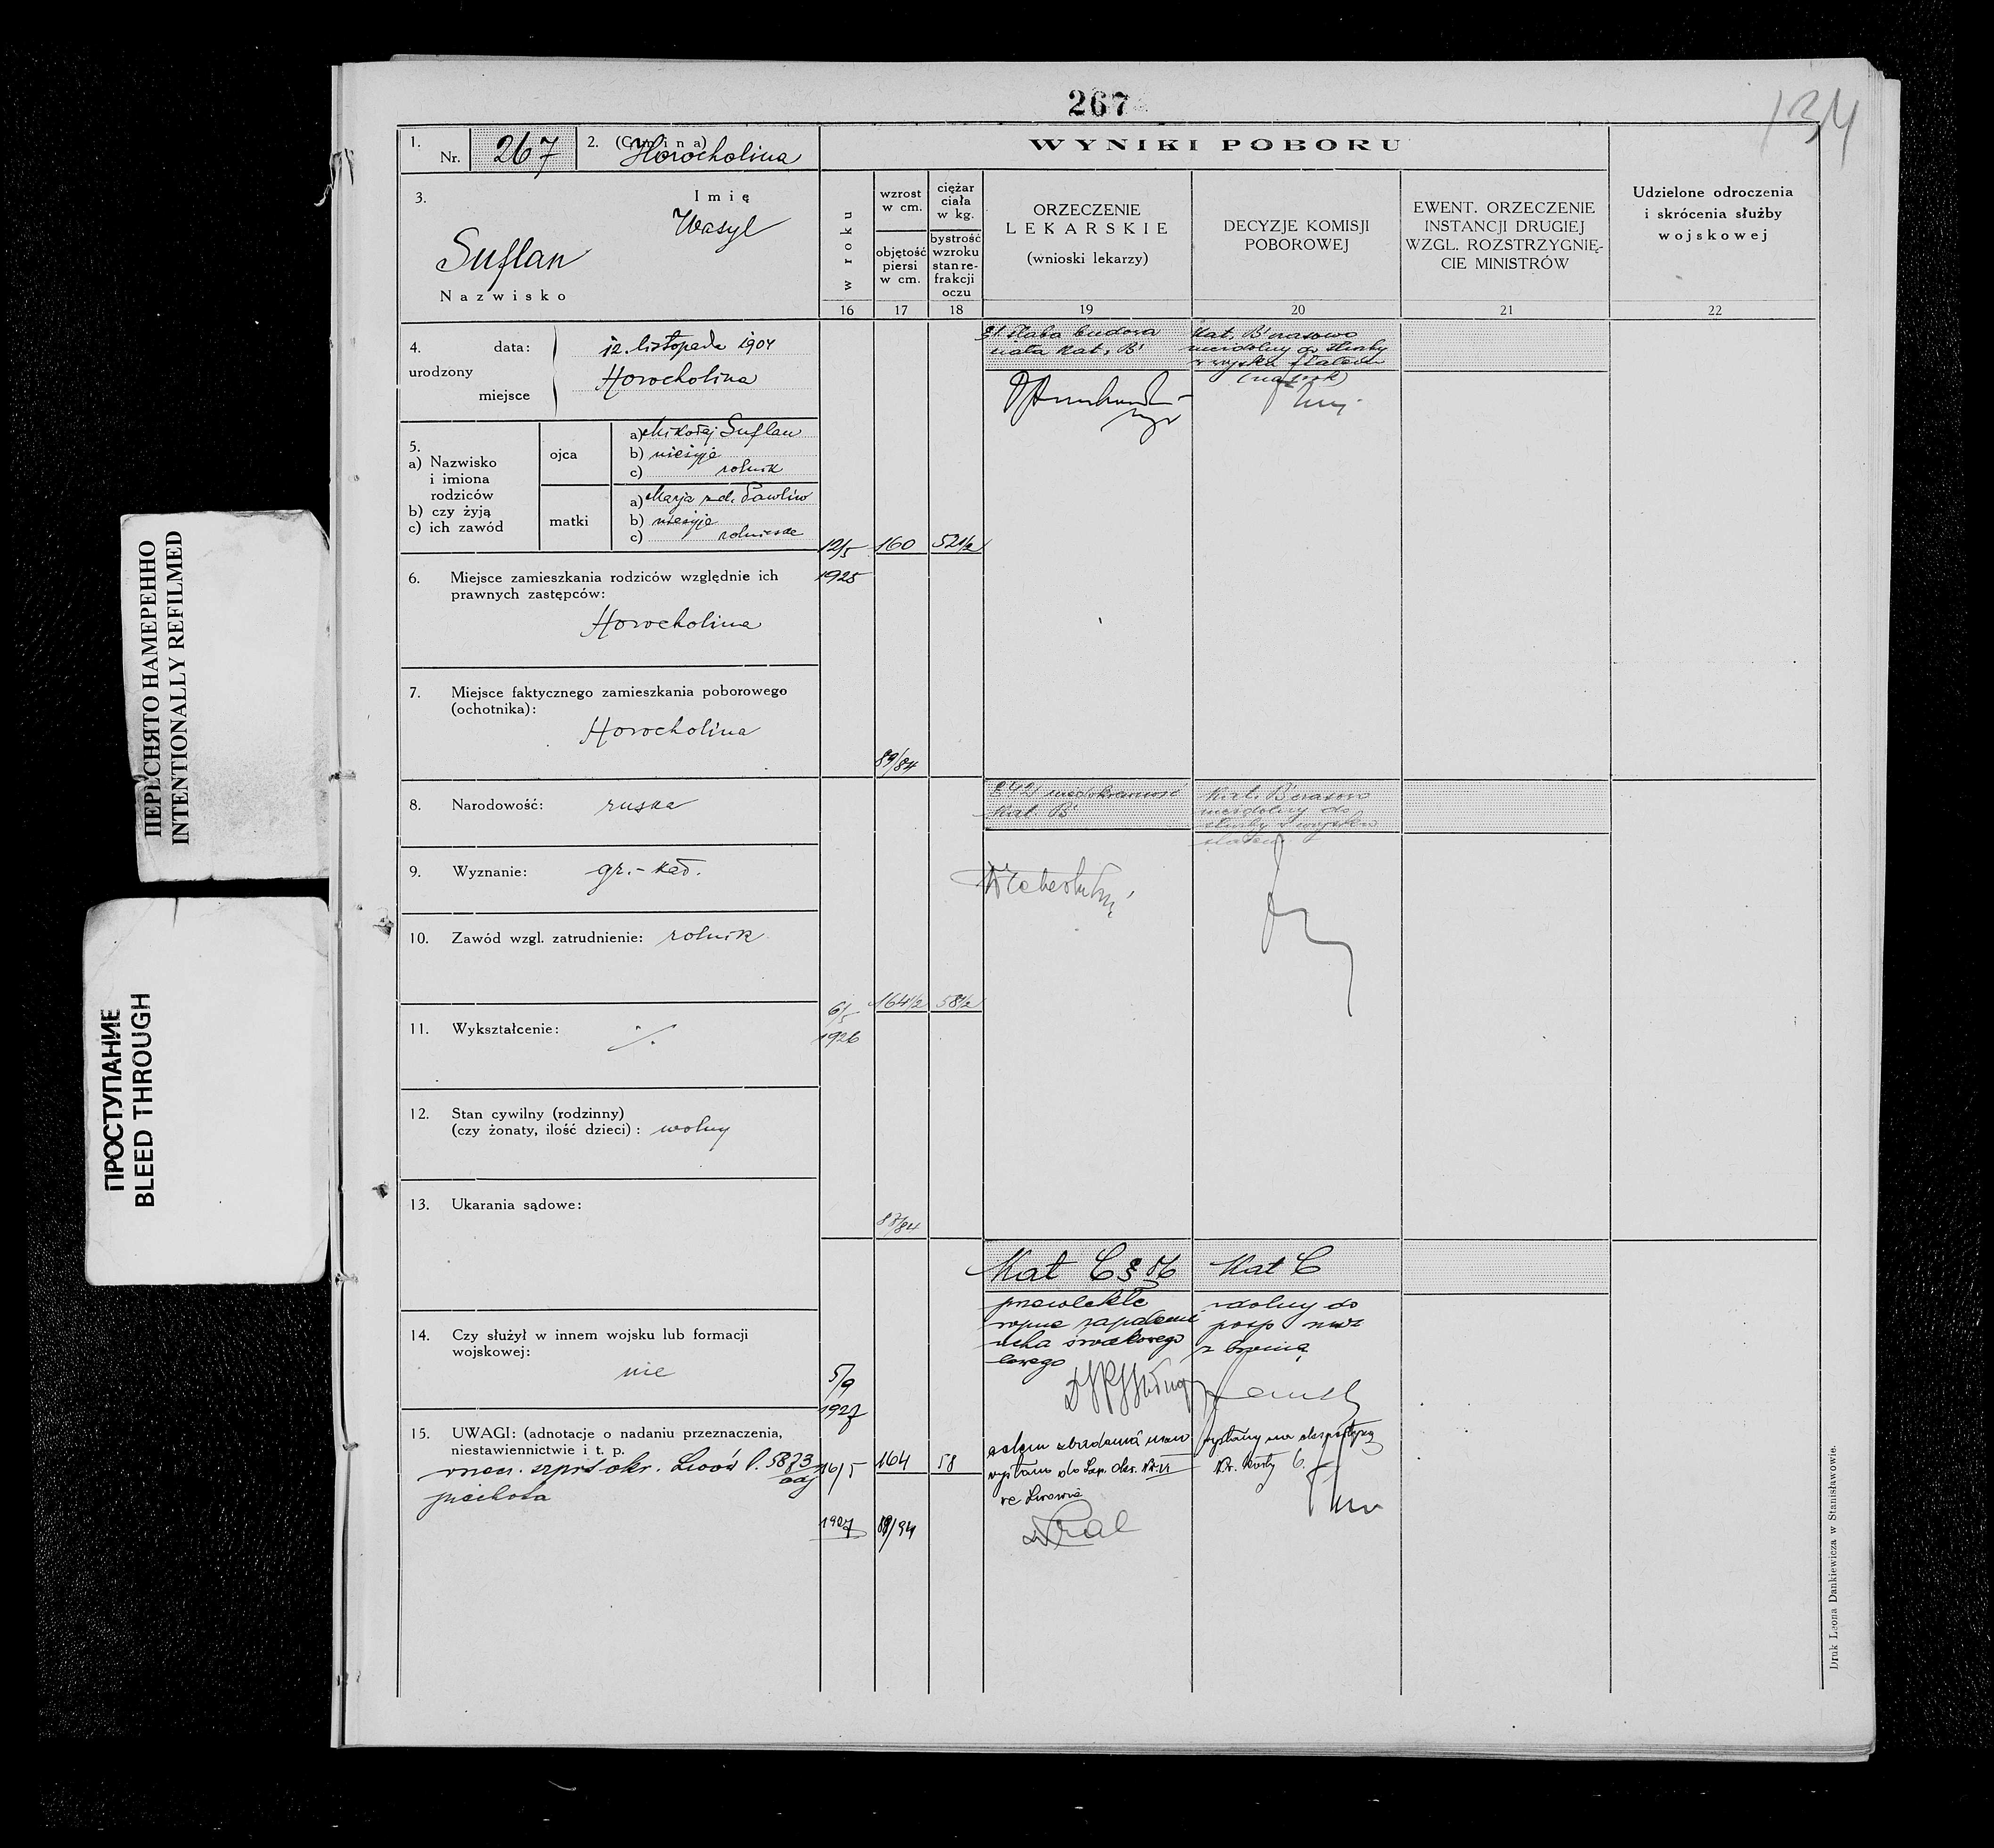 267
134
1. Nr. 267 2. (Gmina) Horocholina
WYNIKI POBORU
3. Imię
Wasyl
Suflan
Nazwisko
w roku
wzrost w cm.
objętość piersi w cm.
ciężar ciała w kg.
bystrość wzroku stan re-frakcji oczu
ORZECZENIE
LEKARSKIE
(wnioski lekarzy)
DECYZJE KOMISJI
POBOROWEJ
EWENT. ORZECZENIE
INSTANCJI DRUGIEJ
WZGL. ROZSTRZYGNIĘ-
CIE MINISTRÓW
Udzielone odroczenia
i skrócenia służby
wojskowej
16 17 18 19 20 21 22
4. data: 12. listopada 1904
urodzony
miejsce Horocholina
słaba budowa
ciała Kat. B
Kat. B czasowo
niezdolny do służby
w wojsku stałem
(na rok)
5.
a) Nazwisko
i imiona
rodziców
b) czy żyją
c) ich zawód
ojca
a) Mikołaj Suflan
b) nieżyje
c) rolnik
matki
a) Marja z d. Pawliw
b) nieżyje
c) rolniczka
12/5 160 52 1/2
1925
6. Miejsce zamieszkania rodziców względnie ich
prawnych zastępców:
Horocholina
7. Miejsce faktycznego zamieszkania poborowego
(ochotnika):
Horocholina
89/84
8. Narodowość: ruska
niedokrwistość
Kat. B
Kat. B czasowo
niezdolny do
służby w wojsku
stałem
9. Wyznanie: gr.-kat.
10. Zawód wzgl. zatrudnienie: rolnik
6/5 164 1/2 58 1/2
1926
11. Wykształcenie: ./.
12. Stan cywilny (rodzinny)
(czy żonaty, ilość dzieci): wolny
13. Ukarania sądowe:
Kat C § 56
przewlekłe
ropne zapalenie
ucha środkowego
lewego
Kat C
zdolny do
posp rusz
z bronią
14. Czy służył w innem wojsku lub formacji
wojskowej:
nie
5/9
1927
15. UWAGI: (adnotacje o nadaniu przeznaczenia,
niestawiennictwie i t. p.
okr. Lwów l. 5873
piechota
16/5 164 58
1927 88/94
celem zbadania
do Szp. Okr. Nr. VI
we Lwowie
Druk Leona Dankiewicza w Stanisławowie.
ПЕРЕСНЯТО НАМЕРЕННО
INTENTIONALLY REFILMED
ПРОСТУПАНИЕ
BLEED THROUGH